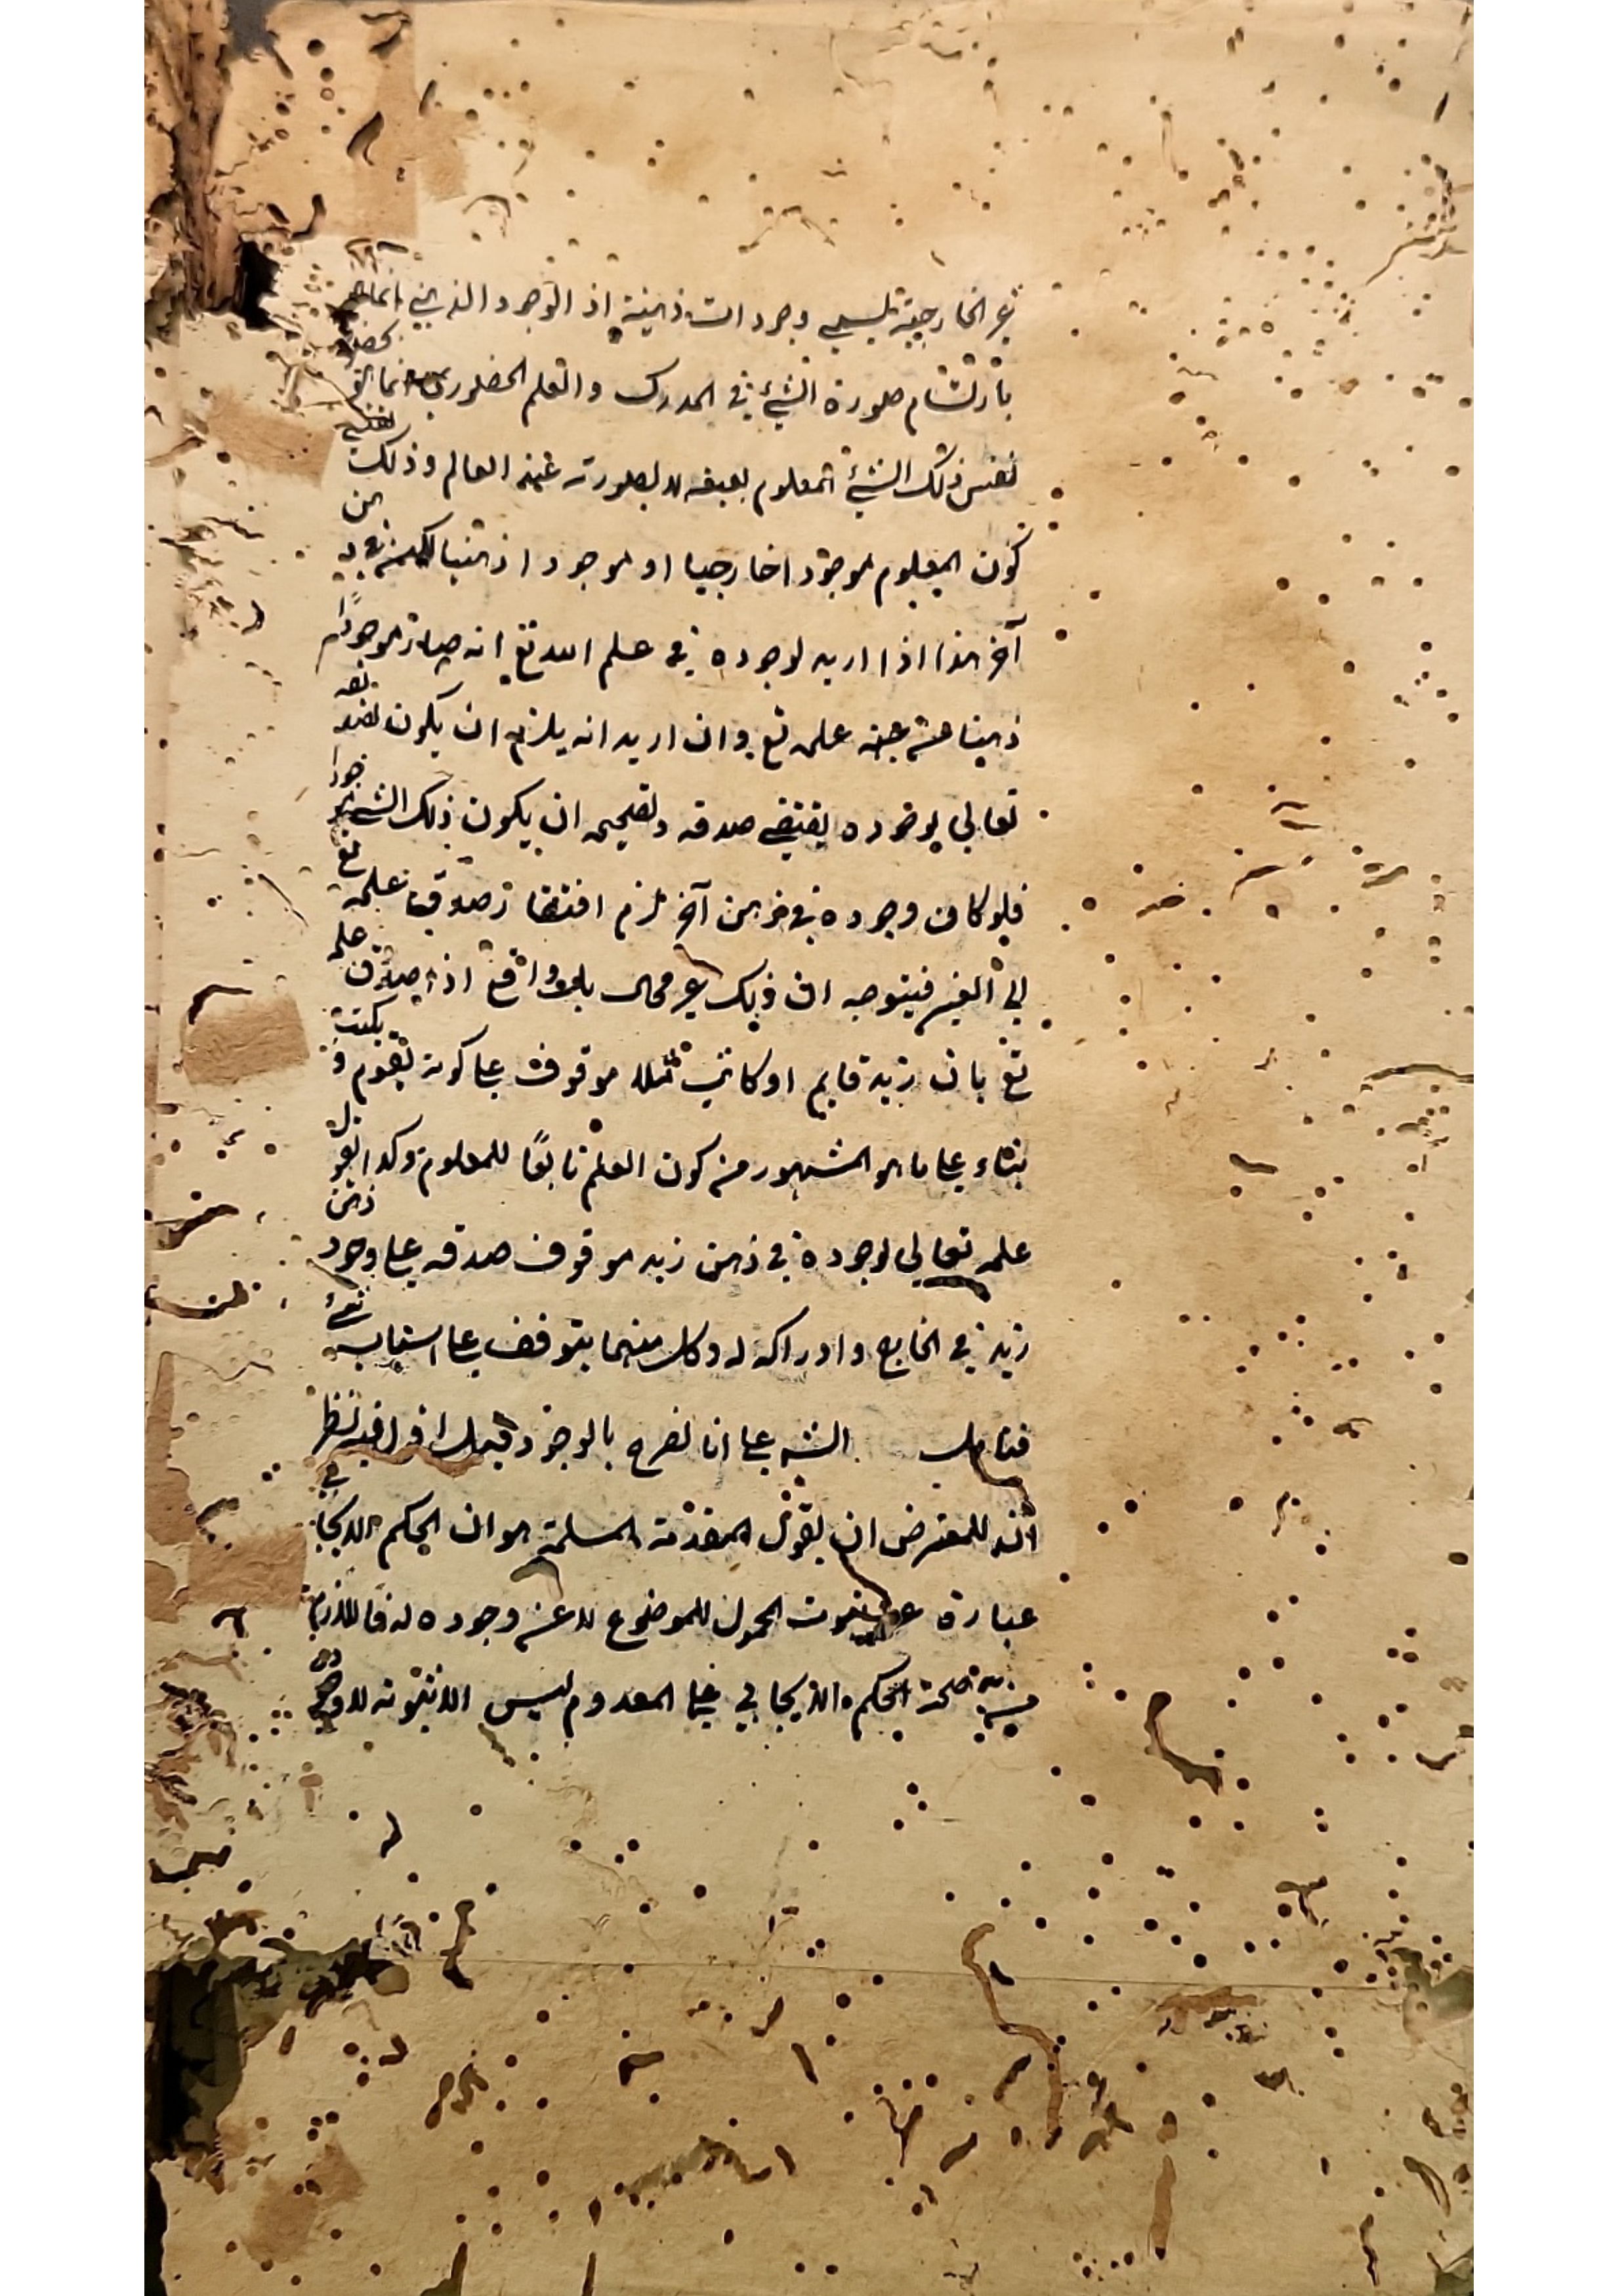 غير الخارجية ليس وجودات ذهنية اذ الوجود الذهني انما هو
بارتسام صورة الشئ في المدرك والعلم الحضوري انما هو بحضور
نفس ذلك الشئ المعلوم بعينه لا بصورته عند العالم وذلك لا يقتضي
كون المعلوم موجودا خارجيا او موجودا ذهنيا من
آخر هذا اذا اريد بوجوده في علم الله تع انه صار موجودا
ذهنيا من جهة علمه تع وان اريد انه يلزم ان يكون لعلمه
تعالى بوجوده يقتضي صدقه وتصحيحه ان يكون ذلك الشئ موجودا
فلو كان وجوده في ذهن آخر لزم افتقار صدق علمه تع
الى الغير فيتوجه ان ذلك غير محال بل هو واقع اذ صدق علمه
تع بان زيد قايم او كاتب مثلا موقوف على كونه يقوم و يكتب
بناء على ما هو المشهور من كون العلم تابعا للمعلوم وكذا القول
علمه تعالى بوجوده في ذهن زيد موقوف صدقه على وجود ذهن
زيد في الخارج وادراكه له وكل منهما يتوقف على اسباب
فتامل الش على انا نصرح بالوجود قيل اقول فيه نظر
لانه للمعترض ان يقول المقدمة المسلمة هو ان الحكم الايجابي
عبارة عن ثبوت المحمول للموضوع لا عن وجوده له فاللازم
من صحة الحكم الايجابي على المعدوم ليس الا ثبوته لا وجوده